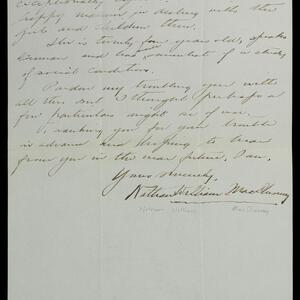 exceptionally
happy manner in dealing with the
girls and children there.
She is twenty four years old, speaks
German and has made somewhat of a study
of social conditions.
Pardon my troubling you with
all this but I thought perhaps a
few particulars might be of use.
Thanking you for your trouble
in advance and hoping to hear
from you in the near future, I am,
Yours sincerely,
Nathan William MacChesney
Nathan William MacChesney